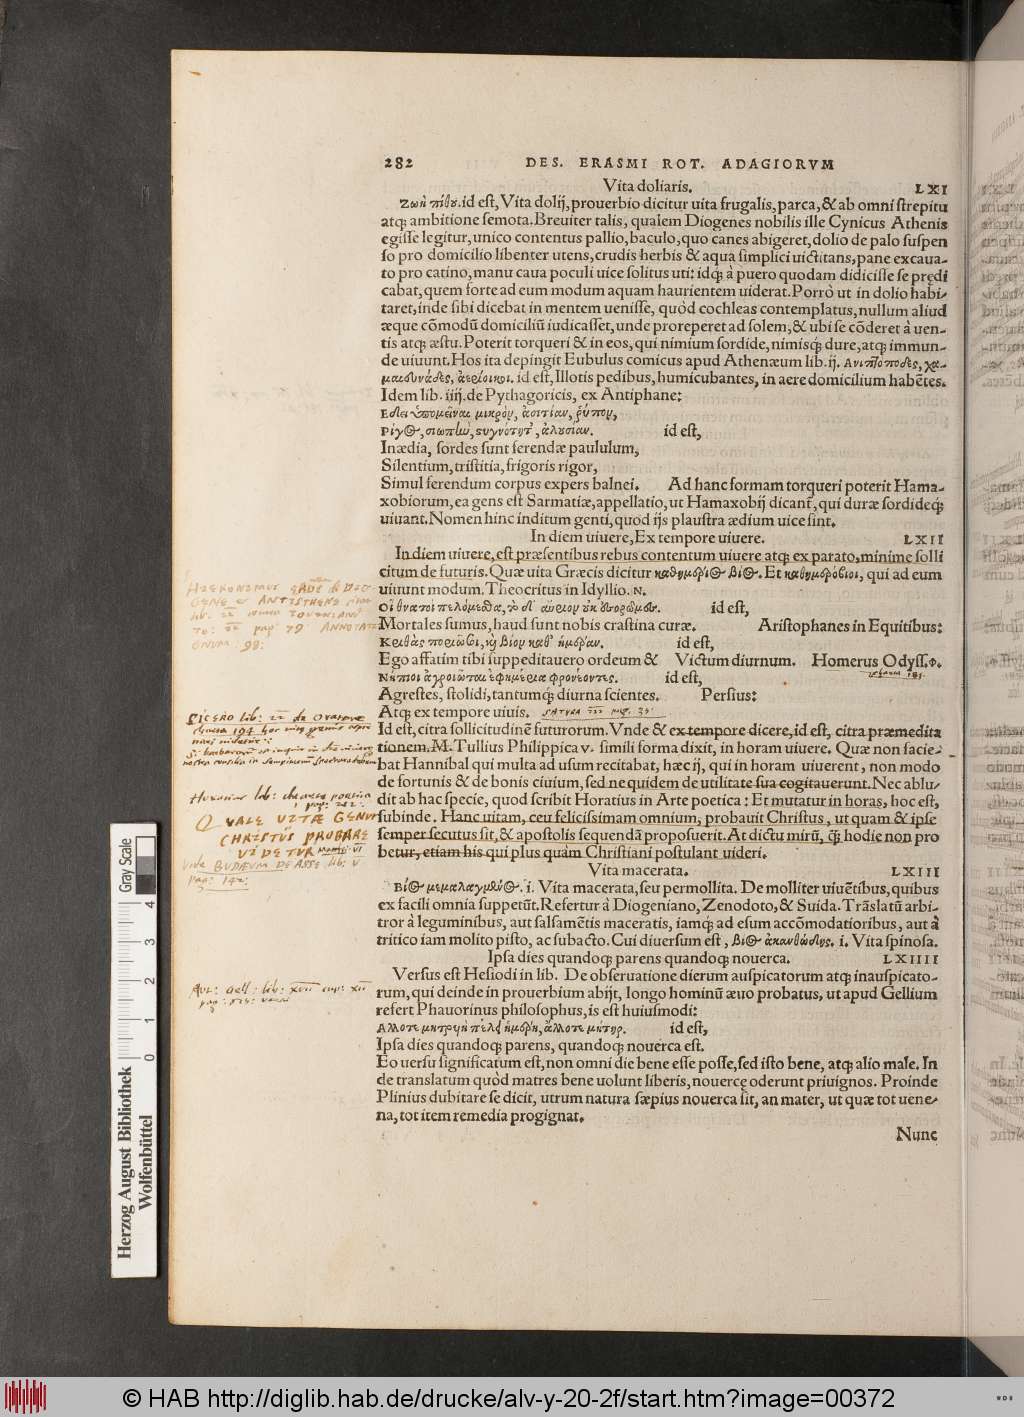 282 DES. ERASMI ROT. ADAGIORVM
Vita doliaris. LXI
Ζωὴ πίθου. id est, Vita dolij, prouerbio dicitur uita frugalis, parca, & ab omni strepitu
atq; ambitione semota. Breuiter talis, qualem Diogenes nobilis ille Cynicus Athenis
egisse legitur, unico contentus pallio, baculo, quo canes abigeret, dolio de palo suspen
so pro domicilio libenter utens, crudis herbis & aqua simplici uictitans, pane excaua-
to pro catino, manu caua poculi uice solitus uti: idq; à puero quodam didicisse se prędi
cabat, quem forte ad eum modum aquam haurientem uiderat. Porrò ut in dolio habi-
taret, inde sibi dicebat in mentem uenisse, quòd cochleas contemplatus, nullum aliud
æque cōmodū domiciliū iudicasset, unde proreperet ad solem, & ubi se cōderet à uen-
tis atq; æstu. Poterit torqueri & in eos, qui nimium sordide, nimisq; dure, atq; immun-
de uiuunt. Hos ita depingit Eubulus comicus apud Athenæum lib. ij. Ανιπτόποδες, χα-
μαιευνάδες, ἀερίοικοι. id est, Illotis pedibus, humicubantes, in aere domicilium habētes.
Idem lib. iiij. de Pythagoricis, ex Antiphane:
Εδει ὑπομεῖναι μικρὸν, ἀσιτίαν, ῥύπον,
Ρίγος, σιωπὴν, στυγνότητ', ἀλουσίαν. id est,
Inædia, sordes sunt ferendæ paululum,
Silentium, tristitia, frigoris rigor,
Simul ferendum corpus expers balnei. Ad hanc formam torqueri poterit Hama-
xobiorum, ea gens est Sarmatiæ, appellatio, ut Hamaxobij dicant', qui duræ sordideq;
uiuant. Nomen hinc inditum genti, quod ijs plaustra ædium uice sint.
In diem uiuere, Ex tempore uiuere. LXII
In diem uiuere, est præsentibus rebus contentum uiuere atq; ex parato, minime solli
citum de futuris. Quæ uita Græcis dicitur καθημέριος βίος. Et καθημερόβιοι, qui ad eum
uiuunt modum. Theocritus in Idyllio. N.
Οἳ θνατοὶ πελόμεσθα, τὸ δ' αὔριον οὐκ ἐσορῶμεν. id est,
Mortales sumus, haud sunt nobis crastina curæ. Aristophanes in Equitibus:
Κριθὰς ποριῶ σοι, καὶ βίον καθ' ἡμέραν. id est,
Ego affatim tibi suppeditauero ordeum & Victum diurnum. Homerus Odyss. Φ.
Νήπιοι ἀγροιῶται ἐφημέρια φρονέοντες. id est,
Agrestes, stolidi, tantumq; diurna scientes. Persius:
Atq; ex tempore uiuis. SATYRA III
Id est, citra sollicitudinē futurorum. Vnde & ex tempore dicere, id est, citra præmedita
tionem. M. Tullius Philippica v. simili forma dixit, in horam uiuere. Quæ non facie-
bat Hannibal qui multa ad usum recitabat, hæc ij, qui in horam uiuerent, non modo
de fortunis & de bonis ciuium, sed ne quidem de utilitate sua cogitauerunt. Nec ablu-
dit ab hac specie, quod scribit Horatius in Arte poetica: Et mutatur in horas, hoc est,
subinde. Hanc uitam, ceu felicissimam omnium, probauit Christus, ut quam & ipse
semper secutus sit, & apostolis sequendā proposuerit. At dictu mirū, q̃ hodie non pro
betur, etiam his qui plus quàm Christiani postulant uideri.
Vita macerata. LXIII
Βίος μεμαλαγμένος. i. Vita macerata, seu permollita. De molliter uiuētibus, quibus
ex facili omnia suppetūt. Refertur à Diogeniano, Zenodoto, & Suida. Trāslatū arbi-
tror à leguminibus, aut salsamētis maceratis, iamq; ad esum accōmodatioribus, aut à
tritico iam molito pisto, ac subacto. Cui diuersum est, βίος ἀκανθώδης. i. Vita spinosa.
Ipsa dies quandoq; parens quandoq; nouerca. LXIIII
Versus est Hesiodi in lib. De obseruatione dierum auspicatorum atq; inauspicato-
rum, qui deinde in prouerbium abijt, longo hominū æuo probatus, ut apud Gellium
refert Phauorinus philosophus, is est huiusmodi:
Αλλοτε μητρυιὴ πέλει ἡμέρη, ἄλλοτε μήτηρ. id est,
Ipsa dies quandoq; parens, quandoq; nouerca est.
Eo uersu significatum est, non omni die bene esse posse, sed isto bene, atq; alio male. In
de translatum quòd matres bene uolunt liberis, nouercę oderunt priuignos. Proinde
Plinius dubitare se dicit, utrum natura sæpius nouerca sit, an mater, ut quæ tot uene-
na, tot item remedia progignat.
Nunc
HIERONIMUS
GENE & ANTISTHENE
TO: pag 79 ANNOTATI
ONUM 98:
CICERO lib: II de Oratore
Horatius lib: de arte poetica
QVALE VITÆ GENVS
CHRISTVS PROBARE
VIDETVR
Vide BUDÆUM DE ASSE lib: V
pag: 142:
Aul: Gell: lib: XVII cap: XII
Herzog August Bibliothek
Wolfenbüttel
Gray Scale
0 1 2 3 4
© HAB http://diglib.hab.de/drucke/alv-y-20-2f/start.htm?image=00372